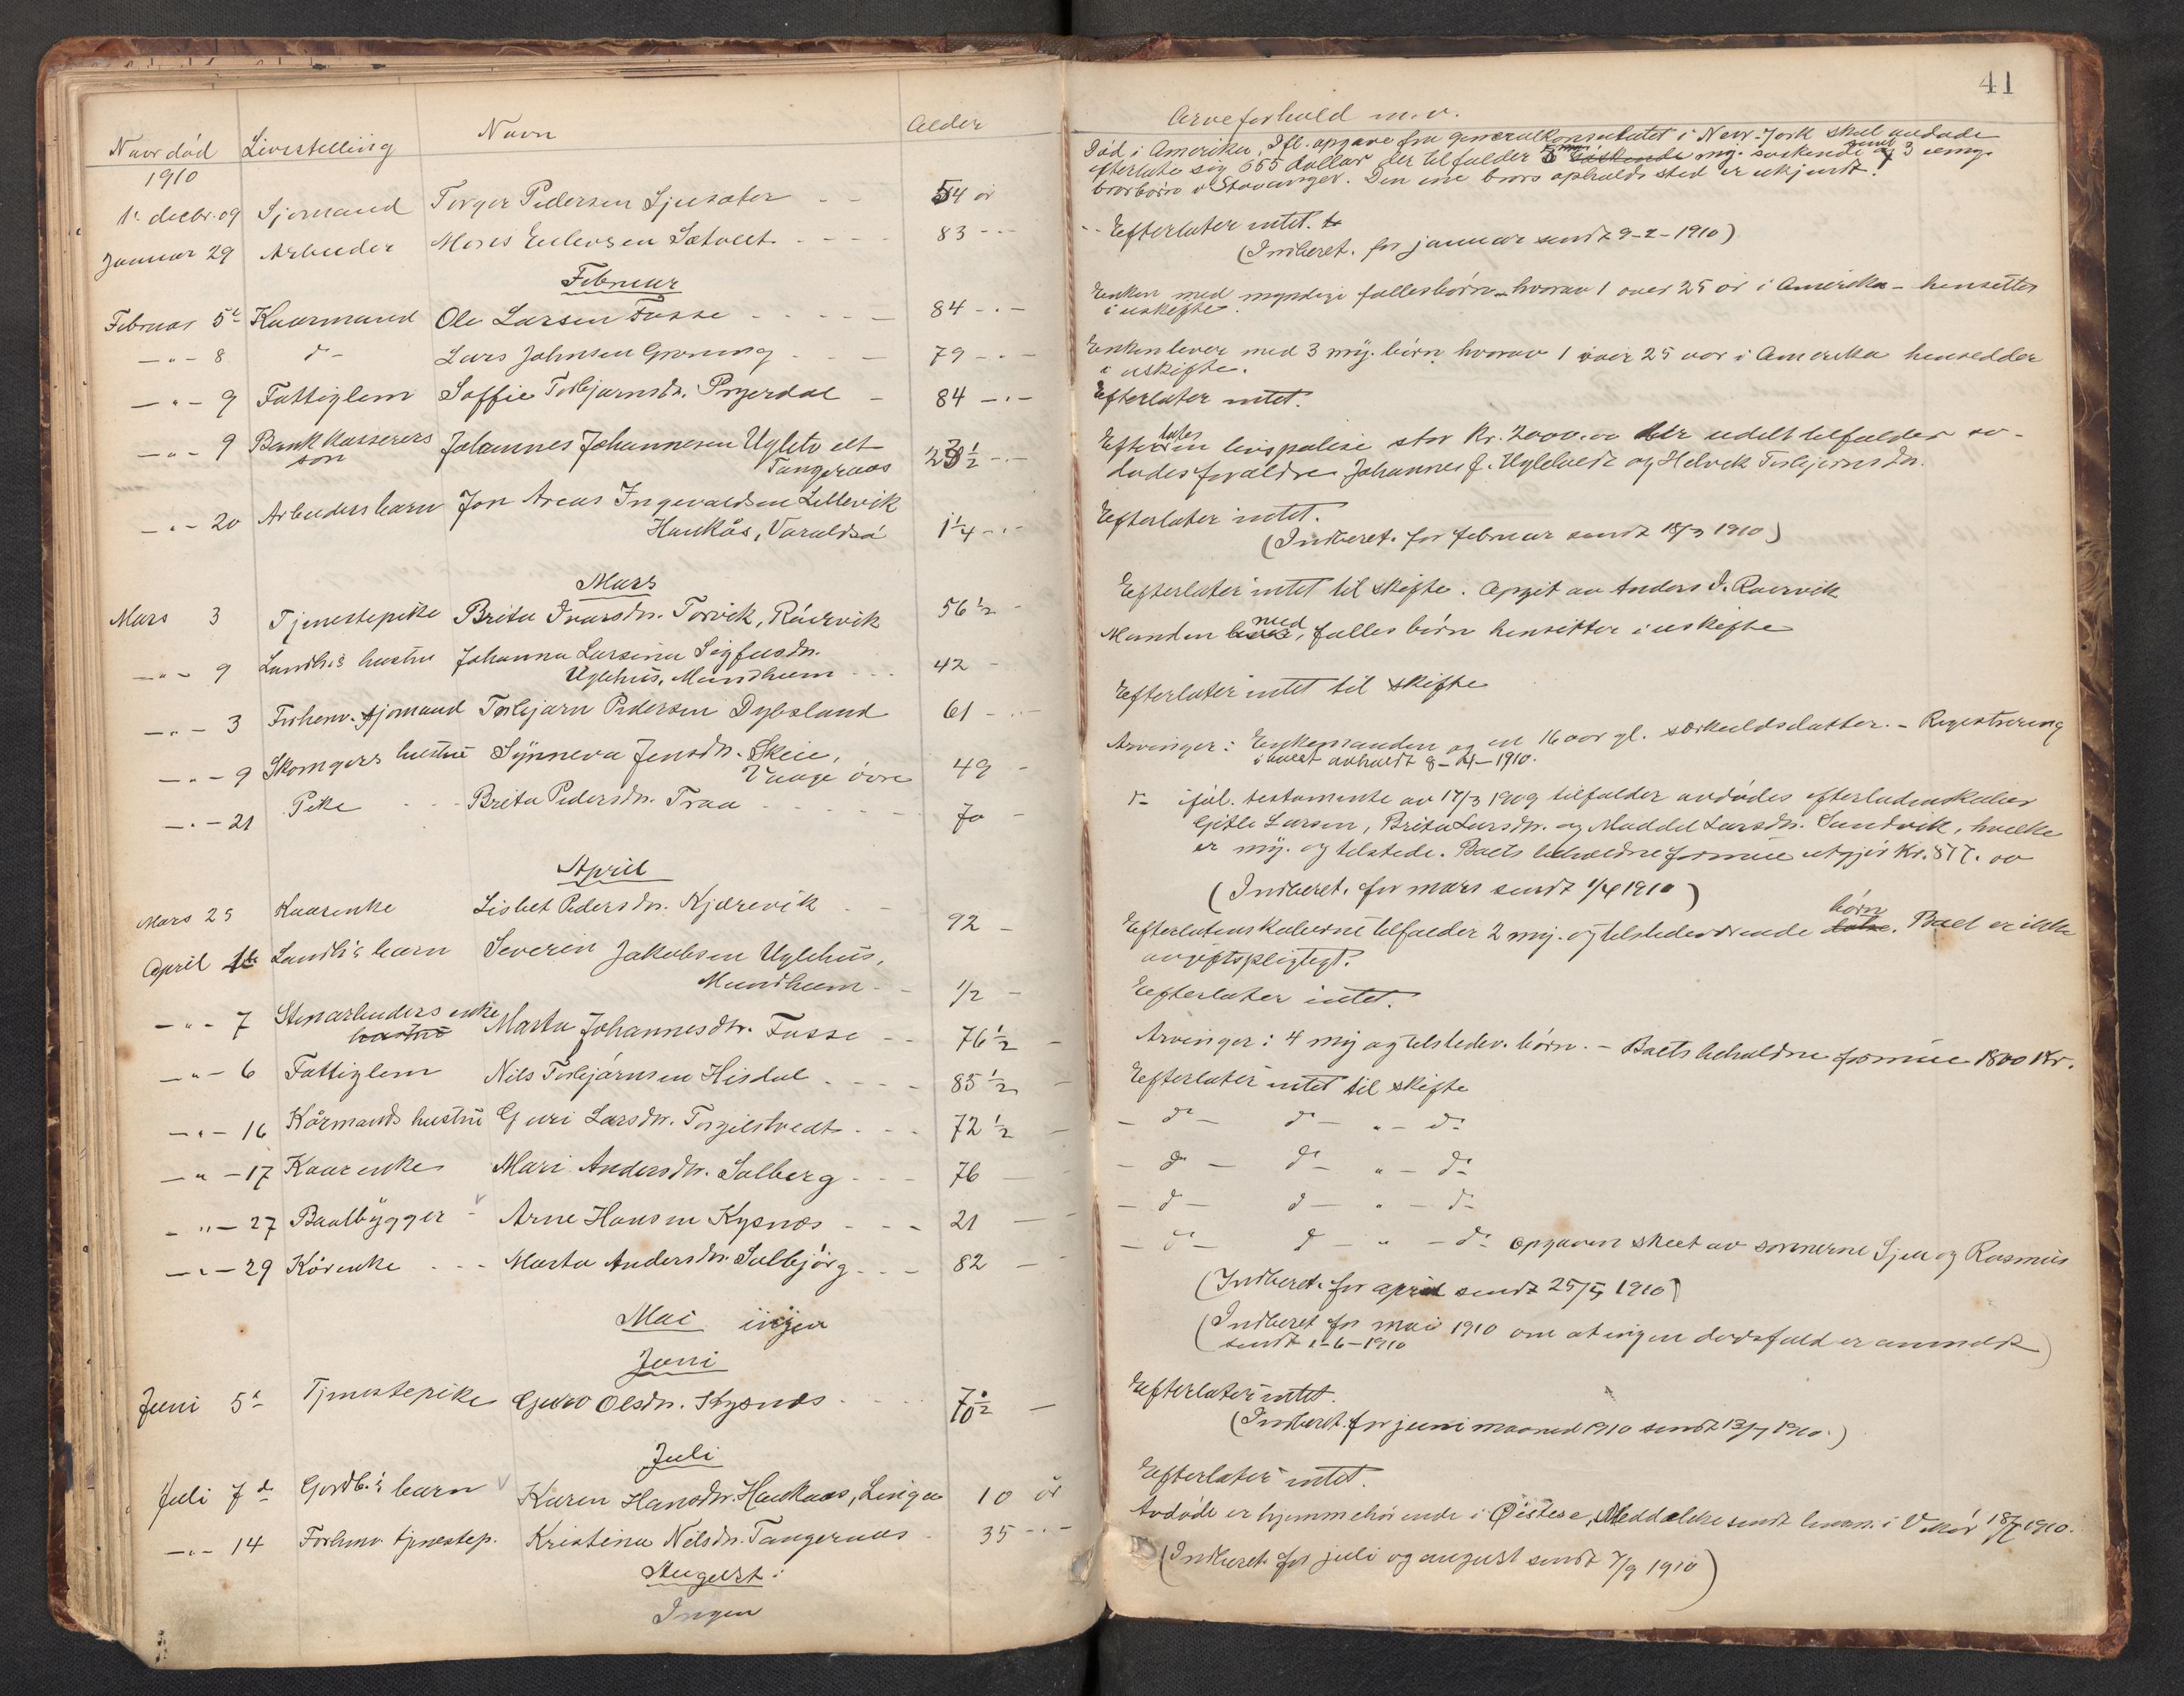 41
Naar död Livsstelling Navn Alder
Arveforhold m. v.
1910
Död i Amerika. Ifl. opgave fra generalkonsulatet i New-York skal avdøde
efterlate sig 655 dollar der tilfalder 5 myn. søskende samt 3 umyn.
brorbörn i Stavanger. Den ene brors opholdssted er ukjendt.
1. decbr. 09 Sjömand Torger Pedersen Sjusæter 54 år
Januar 29 Arbeider Mons Eilevsen Sætveit 83
Efterlater intet.
(Indberet. for januar sendt 9-2-1910)
Februar
Februar 5te Kaarmand Ole Larsen Fosse 84
Enken med myndige fællesbörn hvorav 1 over 25 år i Amerika - hensitter
i uskifte.
-"- 8 do- Lars Johnsen Gröning 79
Enken lever med 3 myn. börn hvorav 1 over 25 aar i Amerika hensidder
i uskifte.
-"- 9 Fattiglem Soffie Torbjørnsdr. Pryerdal 84
Efterlater intet.
-"- 9 Bankkasserers Johannes Johannesen Ugletveit
sön Tangeraas 23½
Efterlates en livspolise stor Kr. 2000.00 der udelt tilfalder av-
dødes forældre Johannes J. Ugletveit og Helvik Torbjørnsdr.
-"- 20 Arbeiders barn Jon Areas Ingevaldsen Lillevik
Haukås, Varaldsö 1¼
Efterlater intet.
(Indberet. for februar sendt 18/3 1910)
Mars
Mars 3 Tjenestepike Brita Ivarsdr. Torvik, Råervik 56½
Efterlater intet til skifte. Opgit av Anders I. Raervik
-"- 9 Landh's hustru Johanna Larsina Sigfusdr.
Uglehus, Mundheim 42
Manden med fælles börn hensitter i uskifte
-"- 3 Forhenv. sjömand Torbjørn Pedersen Dybsland 61
Efterlater intet til skifte
-"- 9 Skomgers hustru Synneva Jensdr. Skeie,
Vaage övre 49
Arvinger: Enkemanden og en 16 aar gl. særkuldsdatter. - Registrering
i boet avholdt 8-4-1910.
-"- 21 Pike Brita Pedersdr. Traa 70
do iföl. testamente av 17/3 1909 tilfalder avdødes efterladenskaber
Gjitle Larsen, Brita Larsdr. og Maddel Larsdr. Sandvik, hvilke
er myn. og tilstede. Boets beholdne formue utgjör Kr. 577.00
(Indberet. for mars sendt 1/4 1910)
April
Mars 25 Kaarenke Lisbet Pedersdr. Kjærevik 92
Efterlatenskaberne tilfalder 2 myn. og tilstedeværende börn. Boet er ikke
avgiftspligtigt.
April Landh's barn Severin Jakobsen Uglehus,
Mundheim ½
Efterlater intet.
-"- 7 Stenarbeiders enke
hustru Marta Johannesdr. Fosse 76½
Arvinger: 4 myn og tilstedev. börn. - Boets beholdne formue 1800 Kr.
-"- 6 Fattiglem Nils Torbjörnsen Hisdal 85½
Efterlater intet til skifte
-"- 16 Kårmands hustru Guri Larsdr. Torgilstveit 72½
- do - do - " - do
-"- 17 Kaarenke Mari Andersdr. Solberg 76
- do - do - " - do
-"- 27 Baatbygger Arne Hansen Kysnes 21
- do - do - " - do
-"- 29 Kårenke Marta Andersdr. Solbjörg 82
- do - do - " - do opgaven skeet av sönnerne Sjur og Rasmus
(Indberet. for april sendt 25/5 1910)
Mai ingen
(Indberet for mai 1910 om at ingen dødsfald er anmeldt
sendt 1-6-1910)
Juni
Juni 5te Tjenestepike Guro Olsdr. Kysnes 70½
Efterlater intet.
(Indberet. for juni maaned 1910 sendt 13/7 1910.)
Juli
Juli 7de Gardb.'s barn Karen Hansdr. Haukaas, Linga 10 år
Efterlater intet.
-"- 14 Forhenv. tjenestep. Kristina Nilsdr. Tangeraas 35
Avdøde er hjemmehörende i Østese, Meddelelse sendt lensm. i Vikör 18/7 1910.
(Indberet. for juli og august sendt 7/9 1910)
August:
Ingen